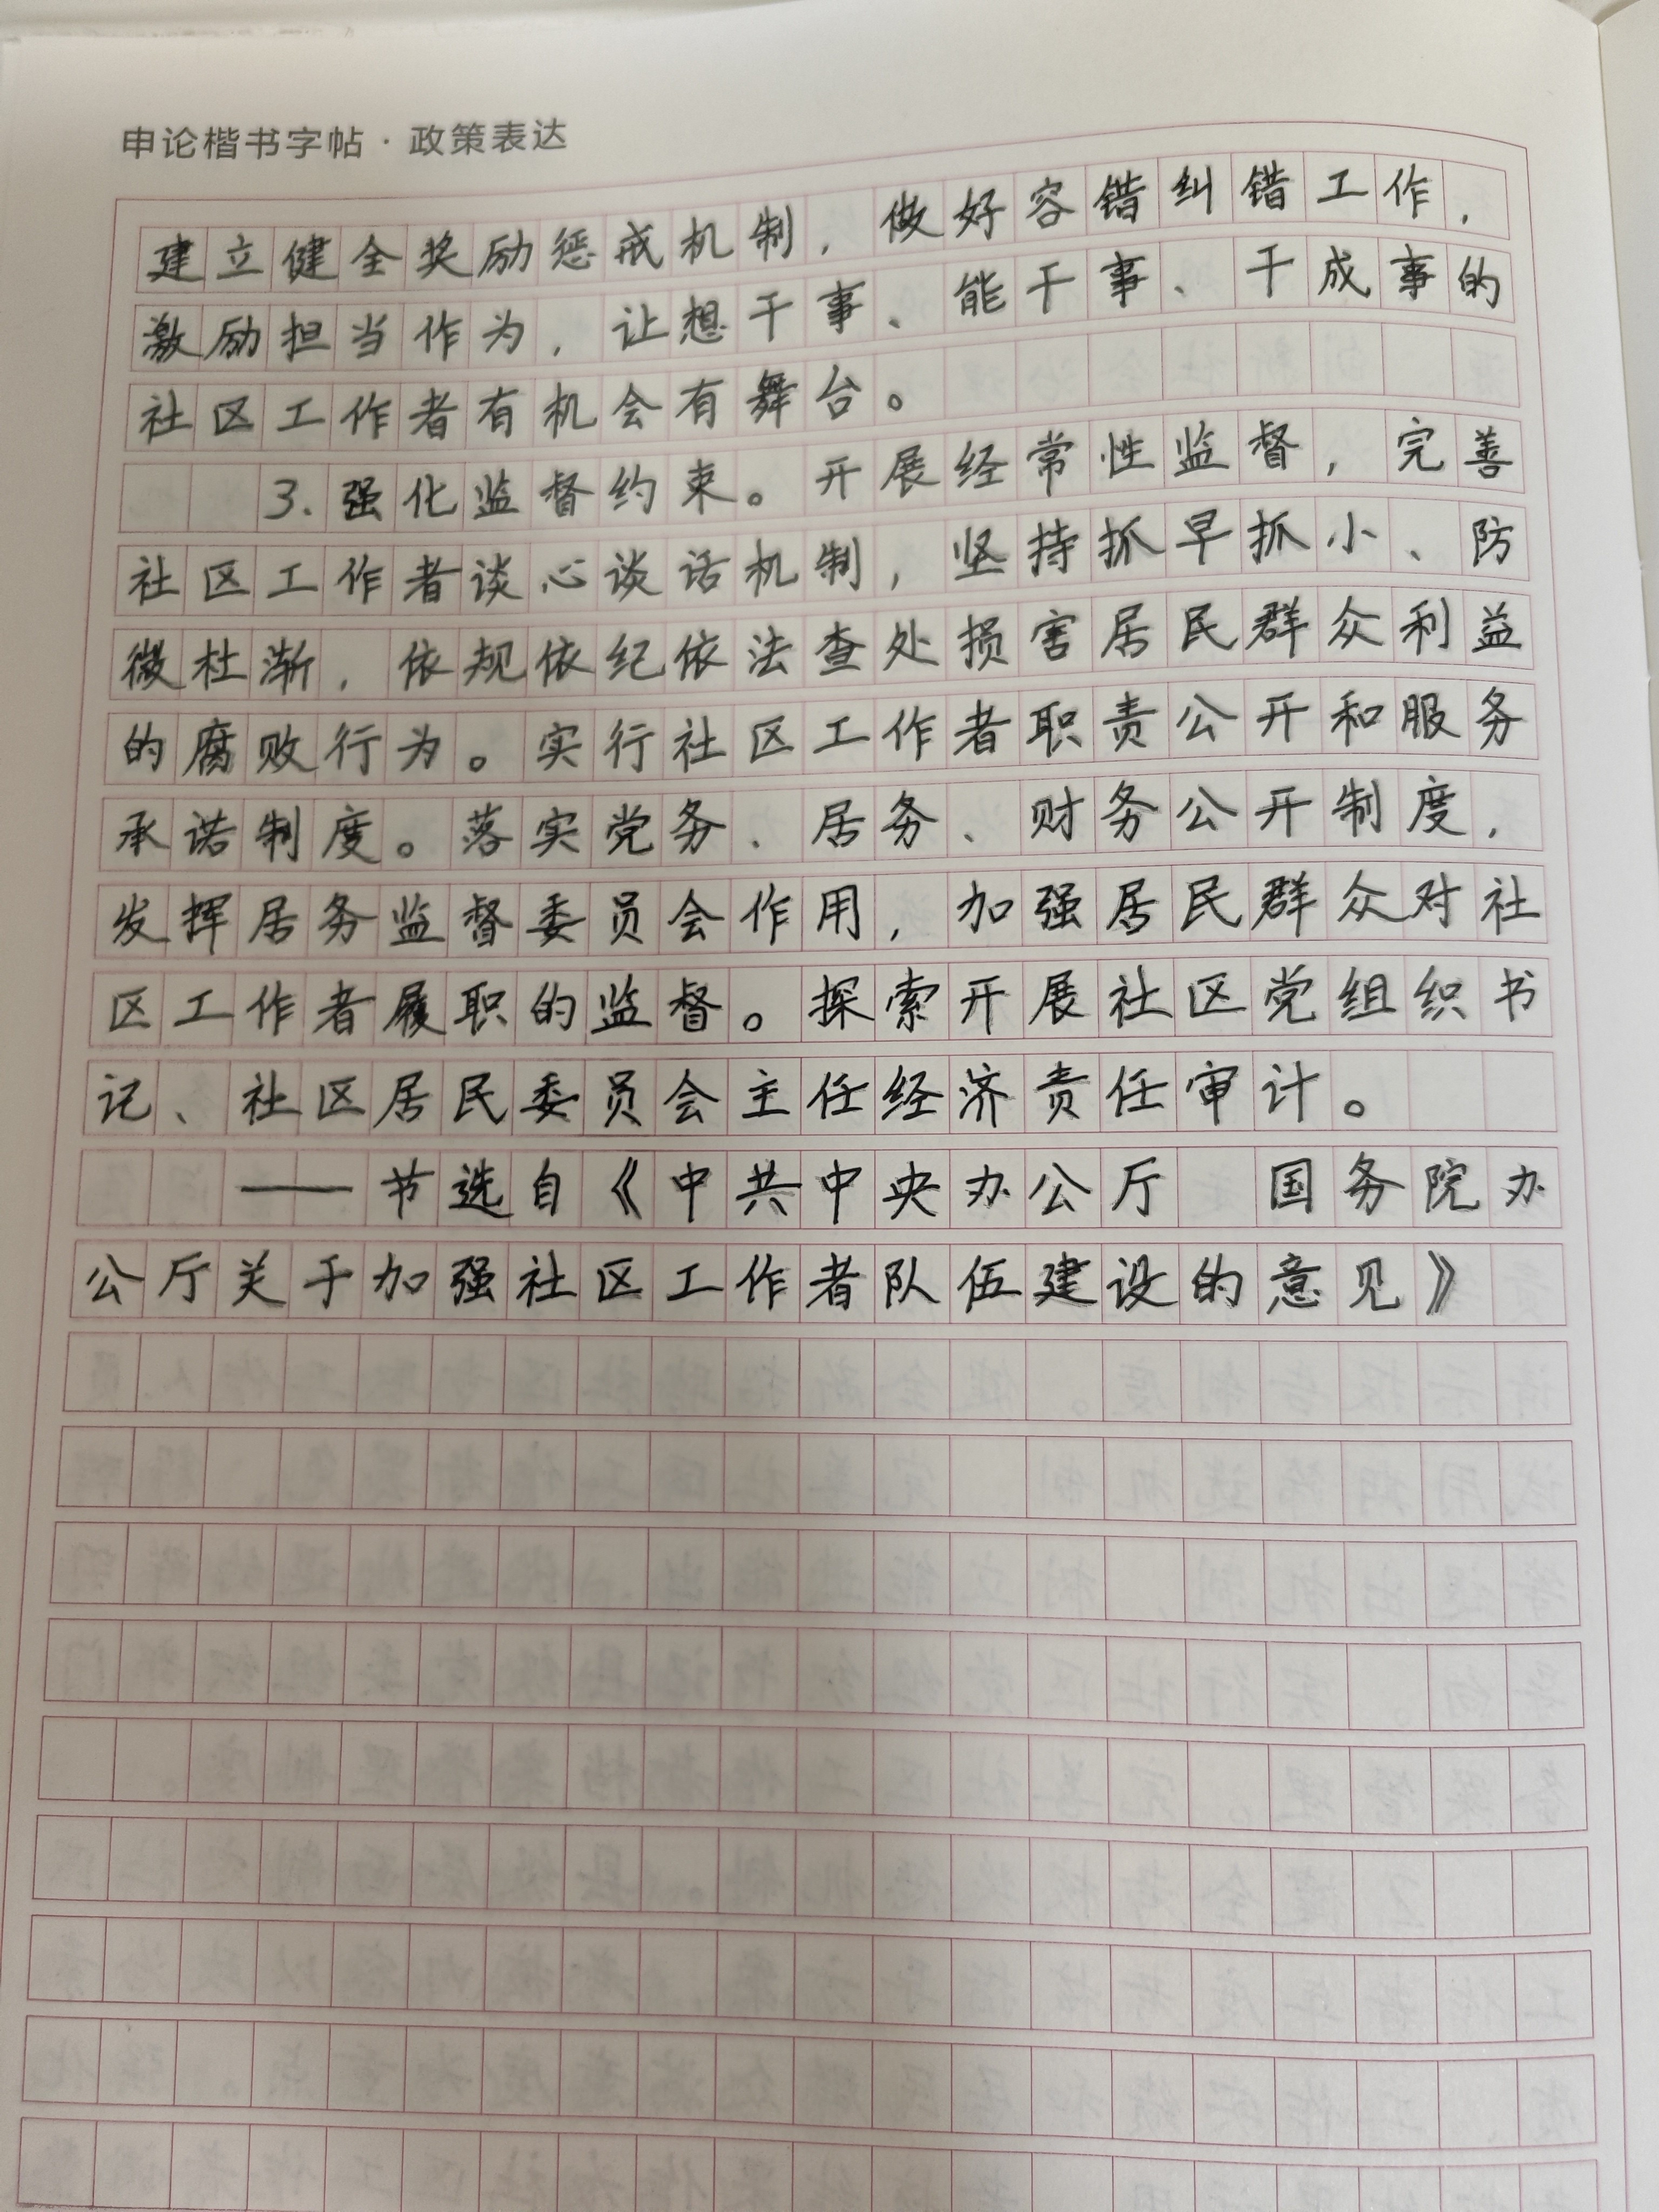 申论楷书字帖·政策表达
建立健全奖励惩戒机制，做好容错纠错工作，
激励担当作为，让想干事、能干事、干成事的
社区工作者有机会有舞台。
3.强化监督约束。开展经常性监督，完善
社区工作者谈心谈话机制，坚持抓早抓小、防
微杜渐，依规依纪依法查处损害居民群众利益
的腐败行为。实行社区工作者职责公开和服务
承诺制度。落实党务、居务、财务公开制度，
发挥居务监督委员会作用，加强居民群众对社
区工作者履职的监督。探索开展社区党组织书
记、社区居民委员会主任经济责任审计。
——节选自《中共中央办公厅 国务院办
公厅关于加强社区工作者队伍建设的意见》